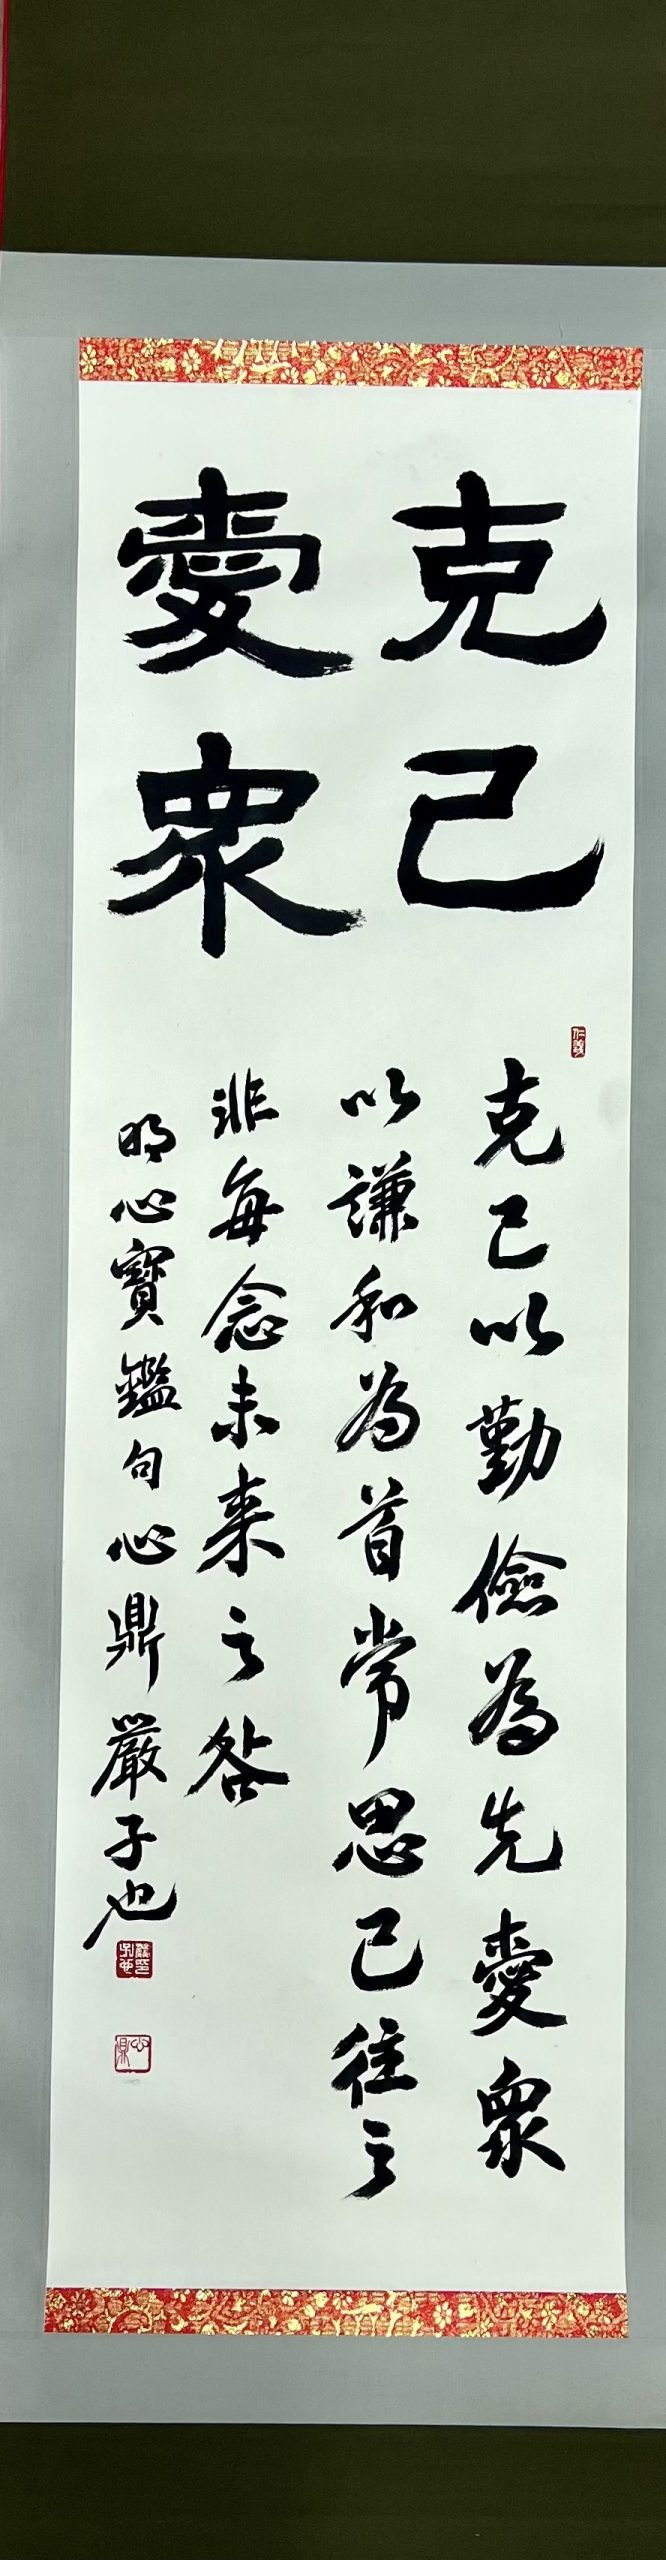 克己
愛衆
克己以勤儉為先愛衆
以謙和為首常思已往之
非每念未来之咎
明心寶鑑句心鼎嚴子也